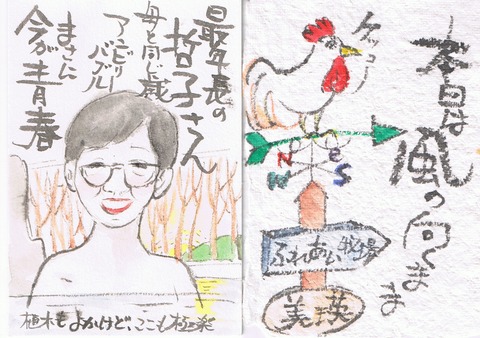 最年長の
哲子さん
母と同じ歳
アンビリー
バブル
まさに
今が青春
植木もよかけど、ここも極楽
本日は
風の向くまま
ケッコー
N e
W S
ふれあい牧場
美瑛